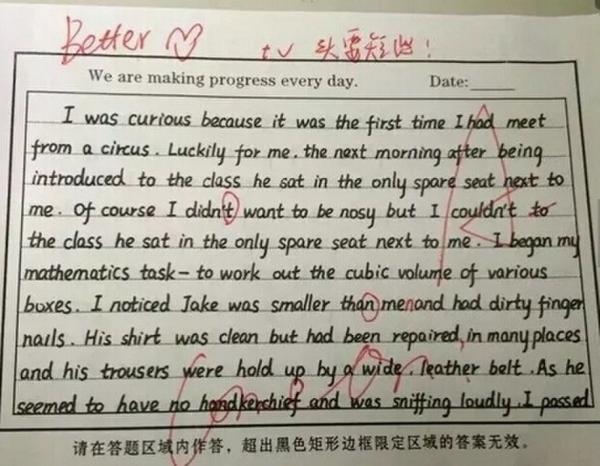 Better t v 头要短些!
We are making progress every day. Date:
I was curious because it was the first time I had meet
from a circus. Luckily for me. the next morning after being
introduced to the class he sat in the only spare seat next to
me. Of course I didn't want to be nosy but I couldn't to
the class he sat in the only spare seat next to me. I began my
mathematics task - to work out the cubic volume of various
boxes. I noticed Jake was smaller than menand had dirty finger
nails. His shirt was clean but had been repaired, in many places
and his trousers were hold up by a wide. leather belt. As he
seemed to have no handkerchief and was sniffing loudly. I passed
请在答题区域内作答,超出黑色矩形边框限定区域的答案无效。